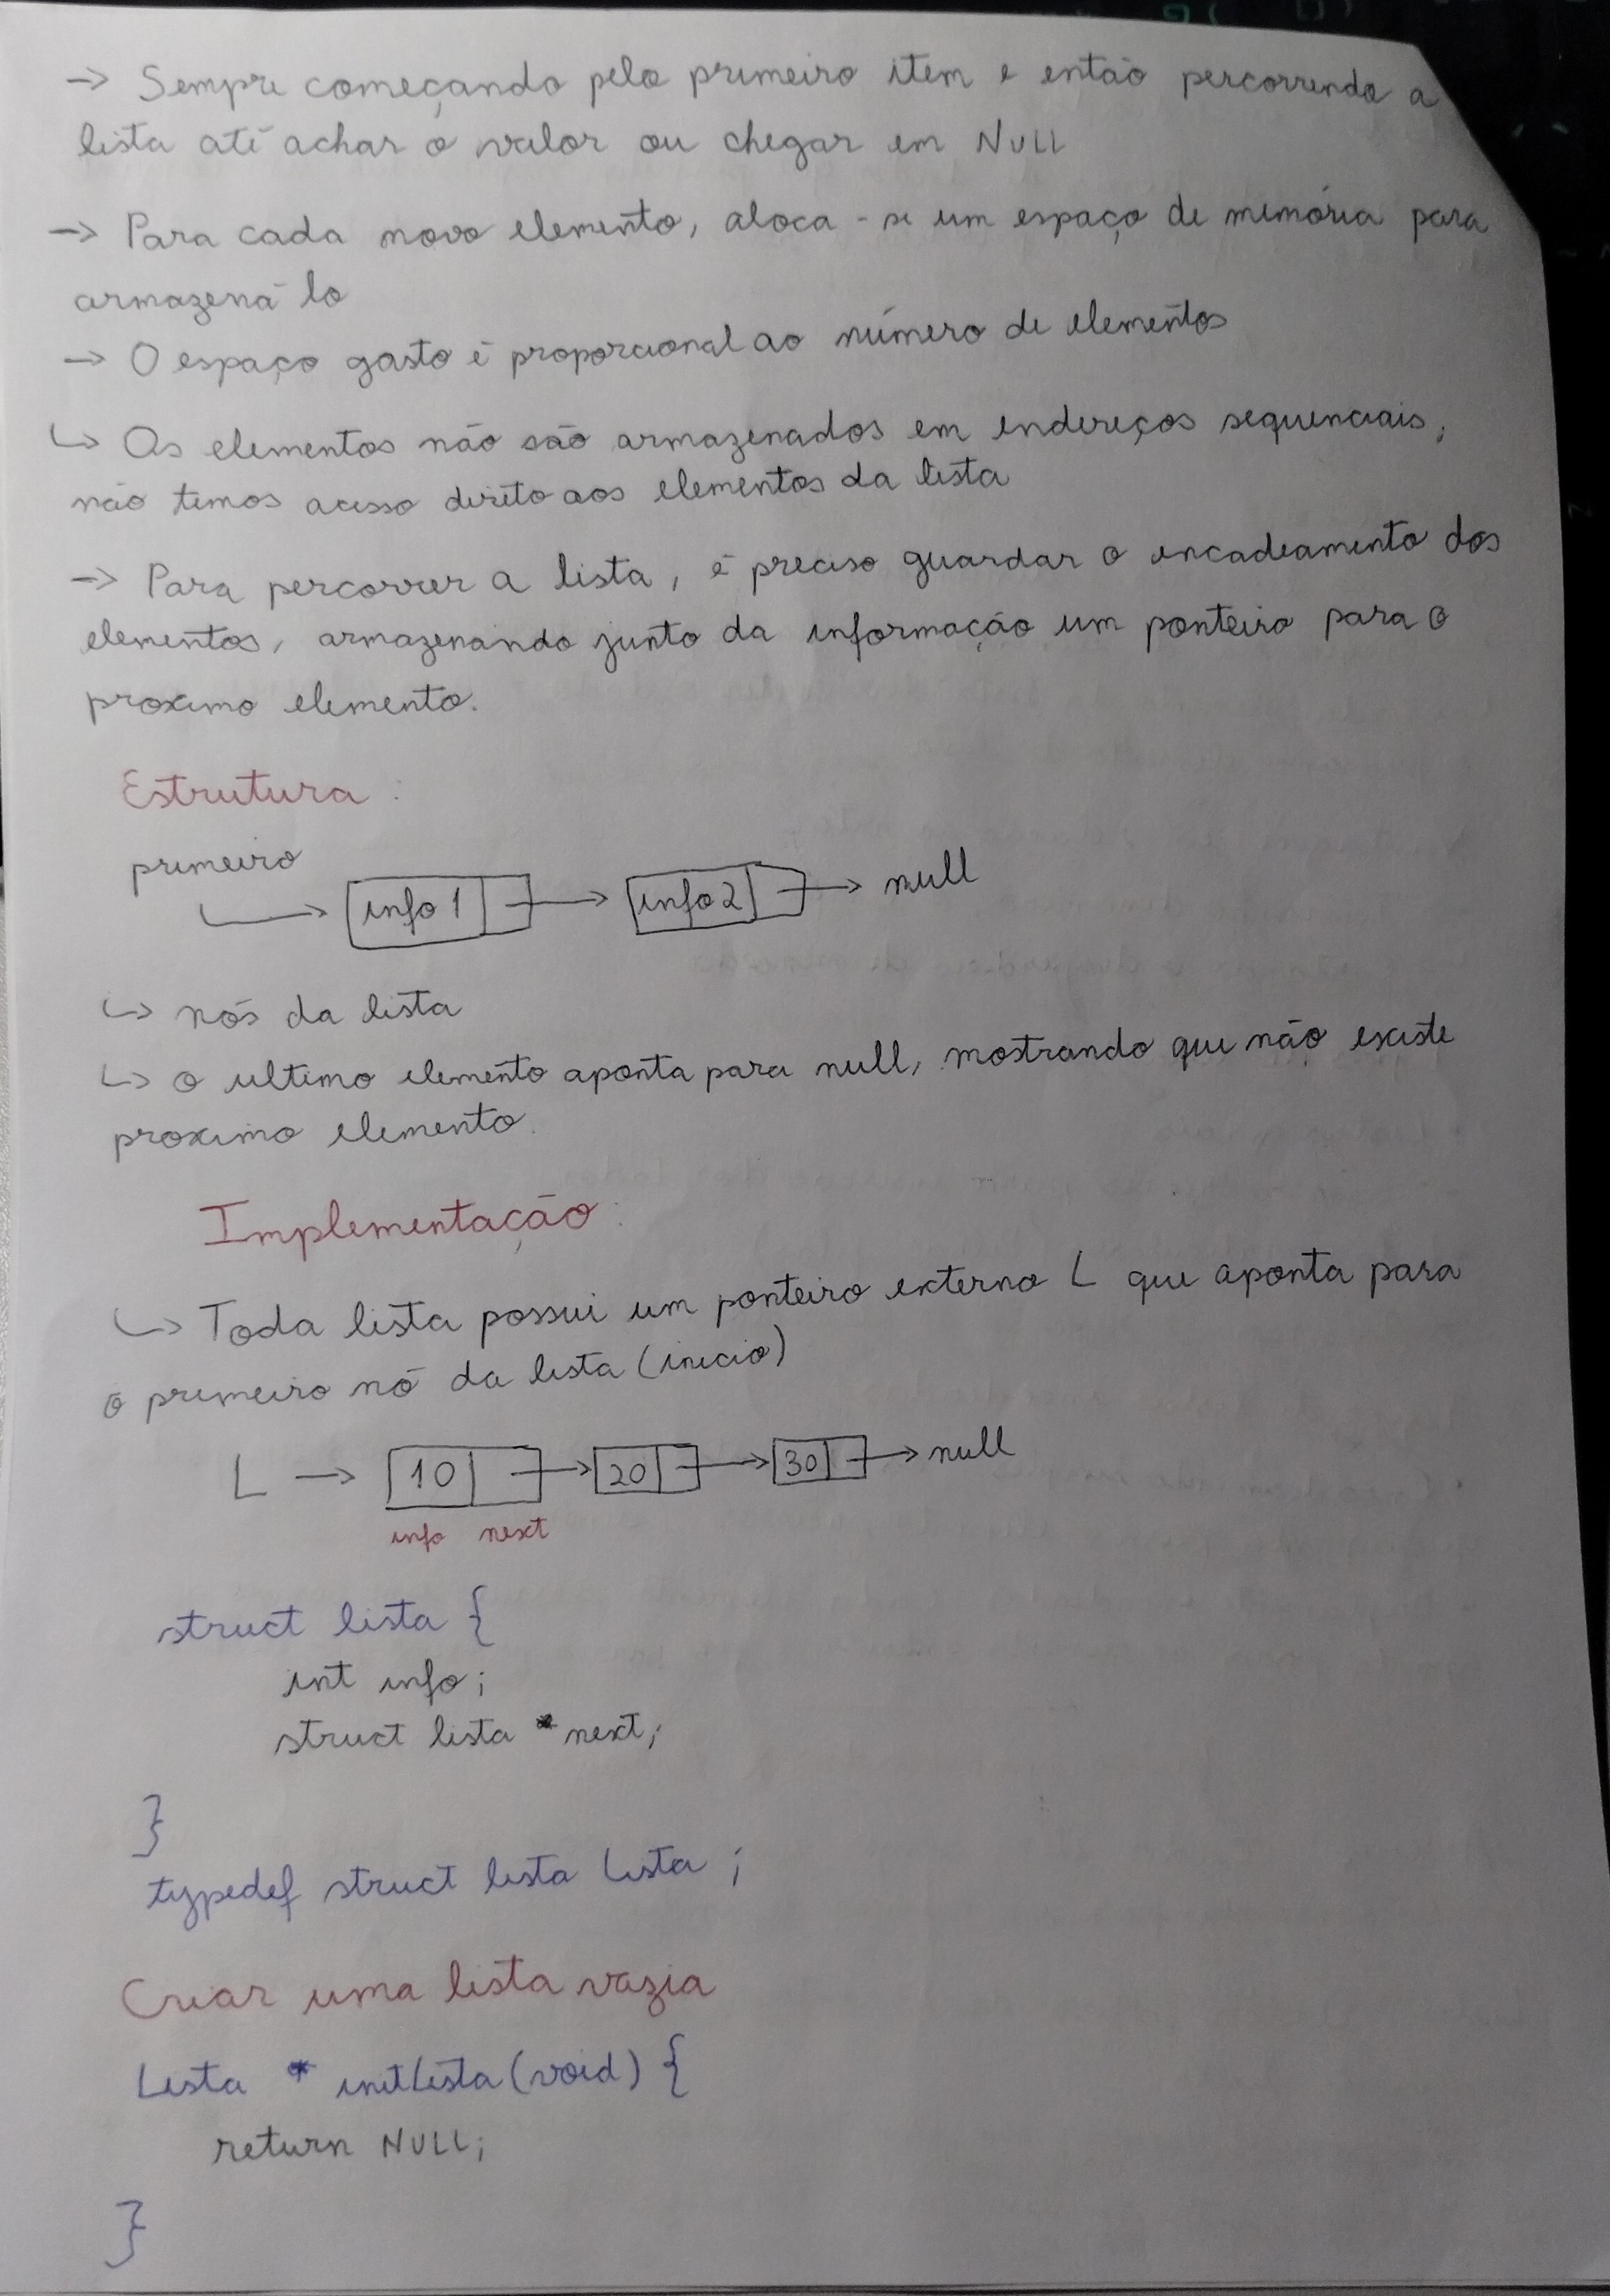 → Sempre começando pelo primeiro item e então percorrendo a
lista até achar o valor ou chegar em NULL
→ Para cada novo elemento, aloca-se um espaço de memória para
armazená lo
→ O espaço gasto é proporcional ao número de elementos
↳ Os elementos não são armazenados em endereços sequenciais,
não temos acesso direto aos elementos da lista
→ Para percorrer a lista, é preciso guardar o encadeamento dos
elementos, armazenando junto da informação um ponteiro para o
proximo elemento.
Estrutura :
primeiro
info 1 → info 2 → null
↳ nós da lista
↳ o ultimo elemento aponta para null, mostrando que não existe
proximo elemento.
Implementação:
↳ Toda lista possui um ponteiro externo L que aponta para
o primeiro nó da lista (inicio)
L → 10 → 20 → 30 → null
info next
struct lista {
int info;
struct lista * next;
}
typedef struct lista Lista ;
Criar uma lista vazia
Lista * initLista (void) {
return NULL;
}